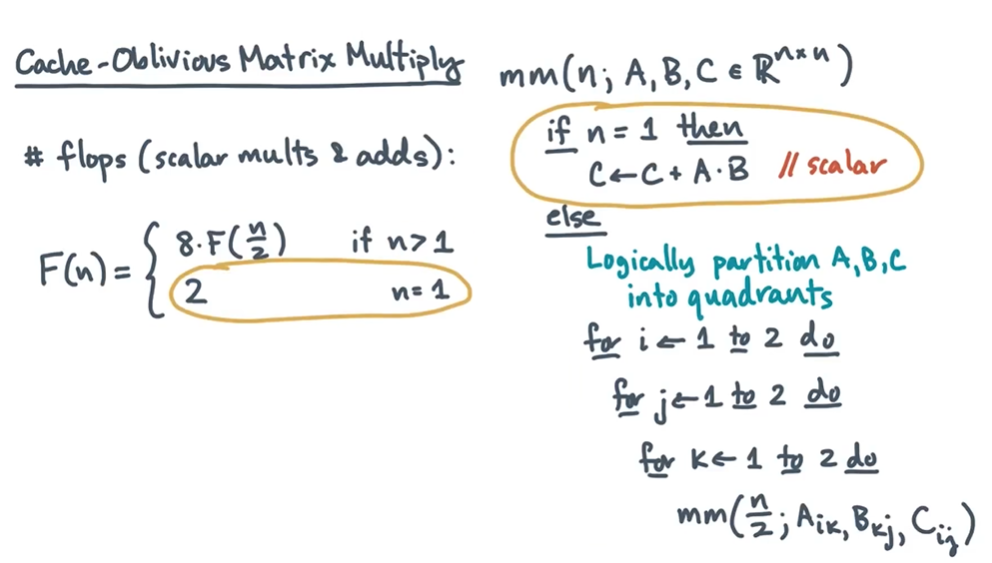 Cache-Oblivious Matrix Multiply
# flops (scalar mults & adds):
F(n) = { 8·F(n/2) if n>1
2 n=1
mm(n; A,B,C ∈ ℝⁿˣⁿ)
if n = 1 then
C ← C + A·B // scalar
else
Logically partition A,B,C
into quadrants
for i ← 1 to 2 do
for j ← 1 to 2 do
for k ← 1 to 2 do
mm(n/2; Aik, Bkj, Cij)